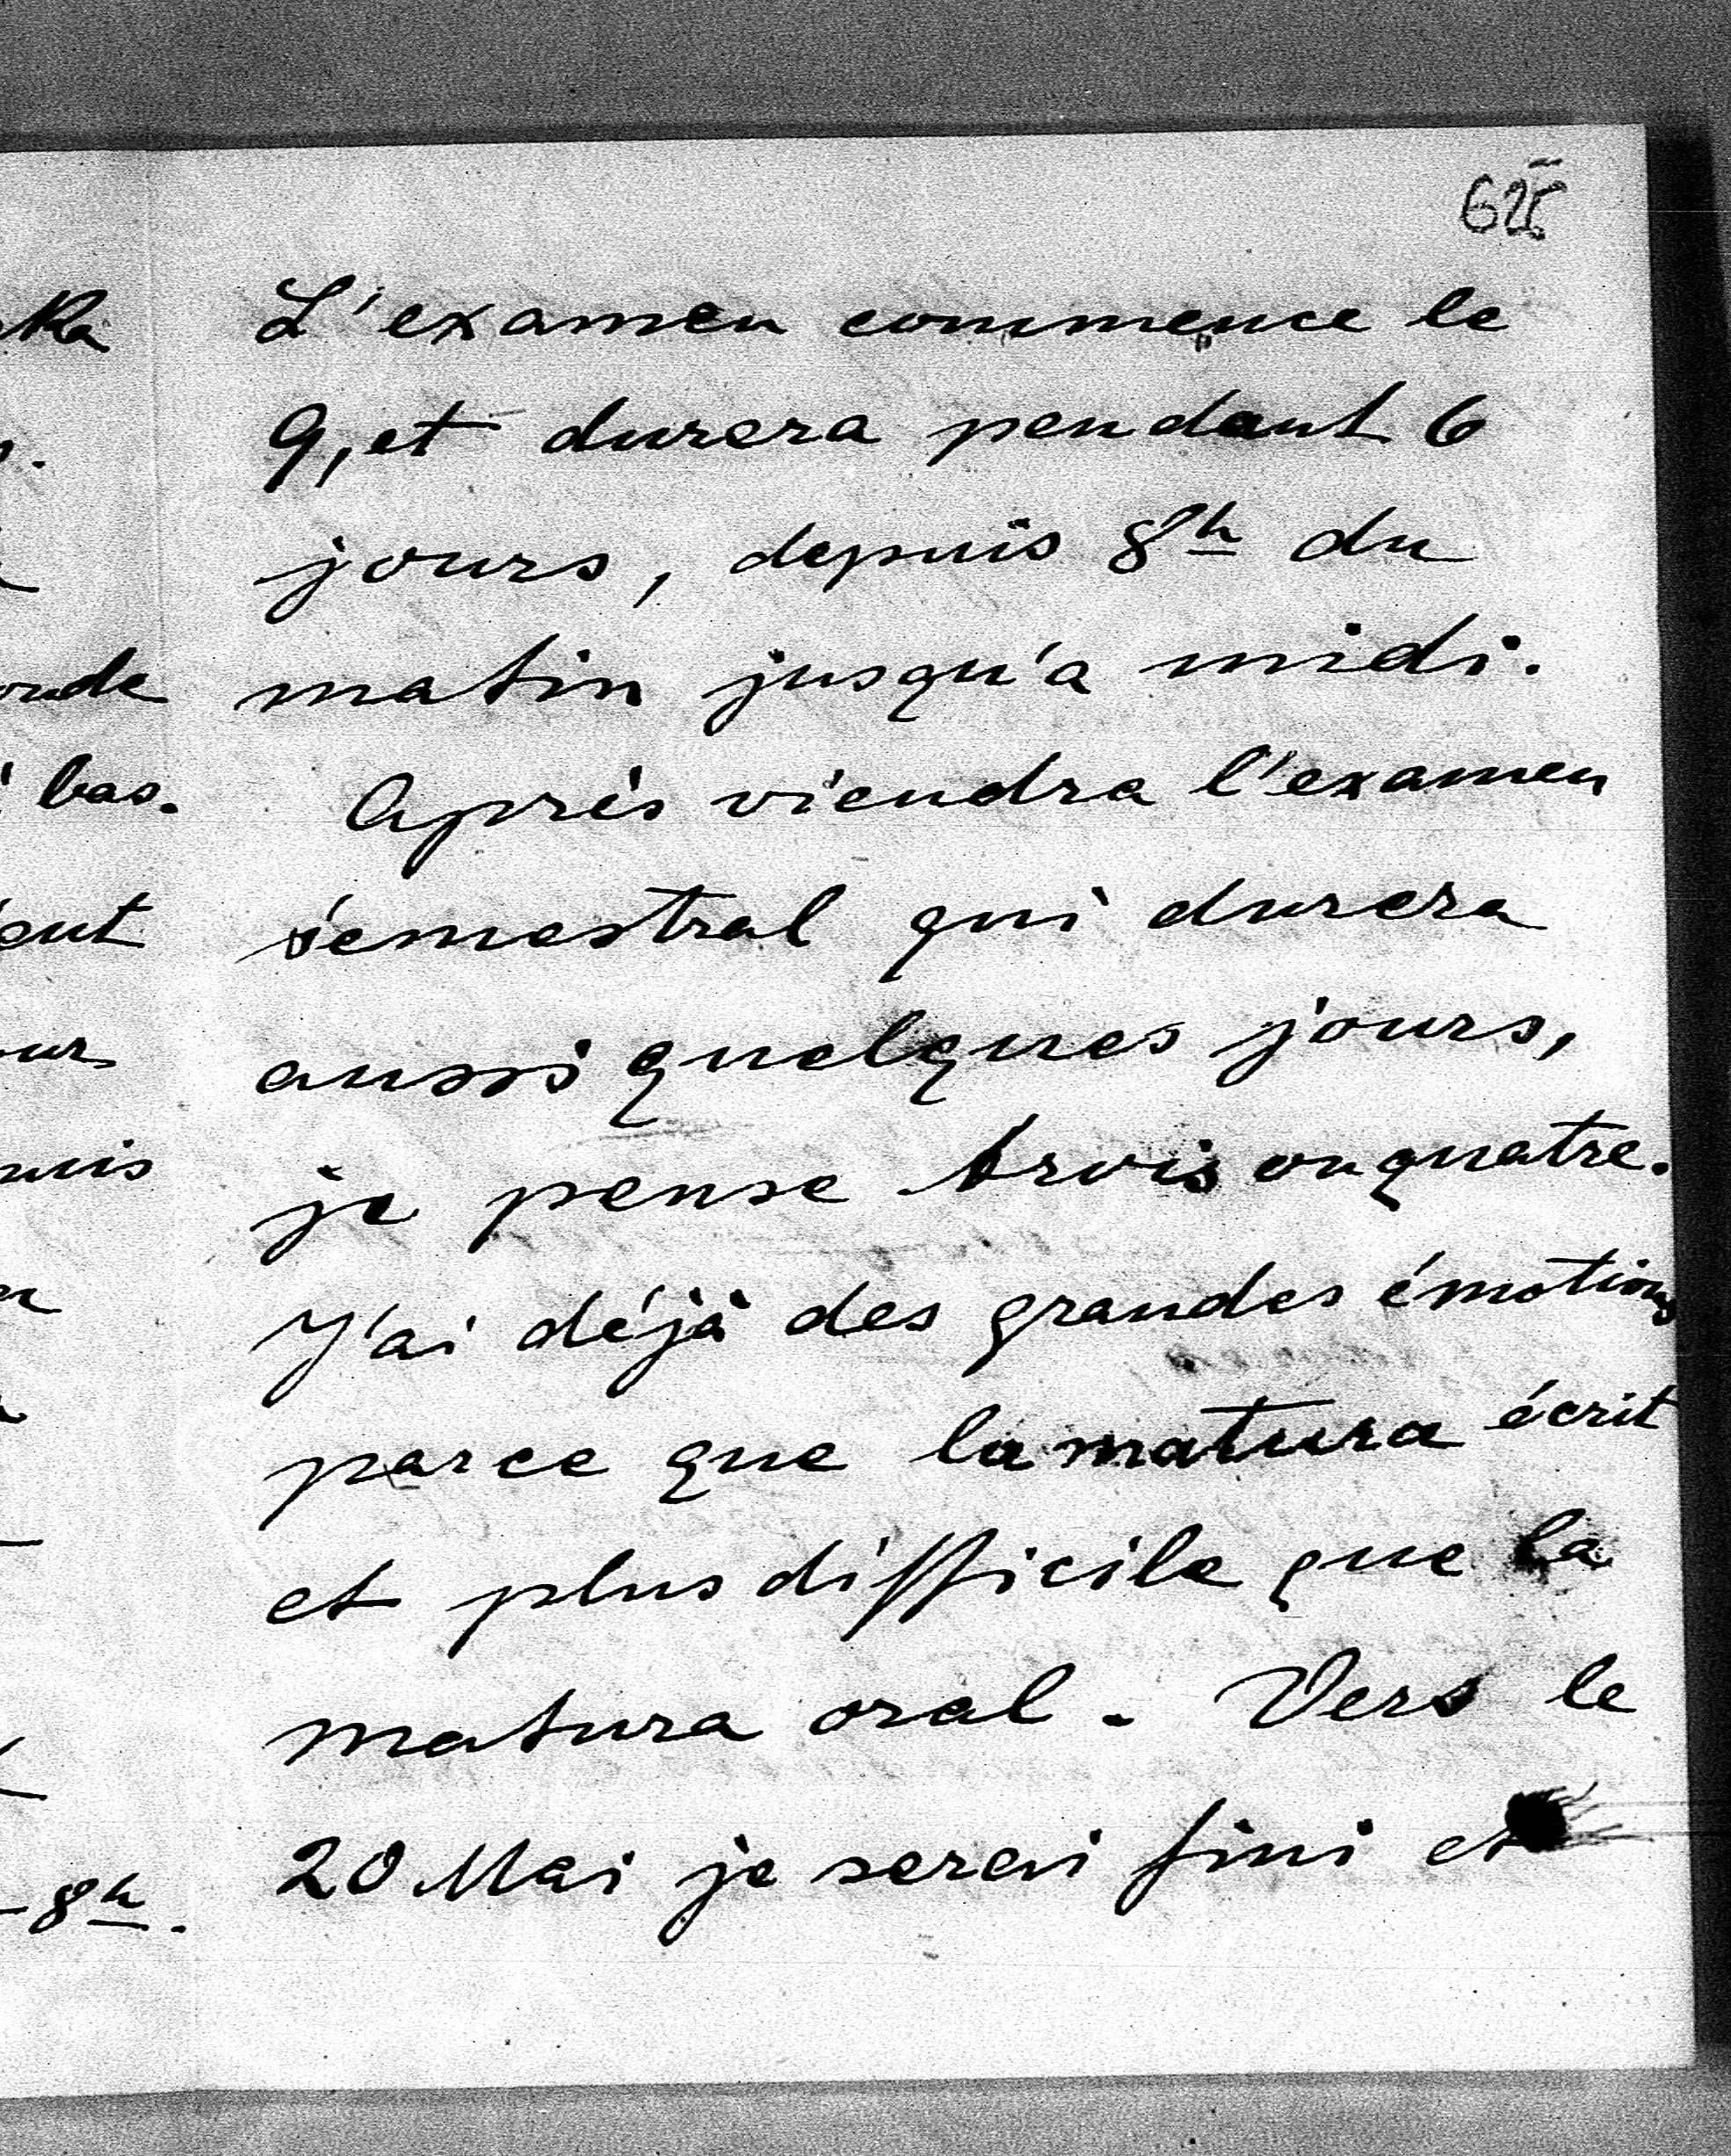 L'examen commence le
9, et durera pendant 6
jours, depuis 8h du
matin jusqu'a midi.
Après viendra l'examen
sémestral qui durera
aussi quelques jours,
je pense trois ou quatre.
J'ai déjà des grandes émotions
parce que la matura écrit
et plus difficile que la
matura oral. Vers le
20 Mai je serai fini et
bas.
8h.